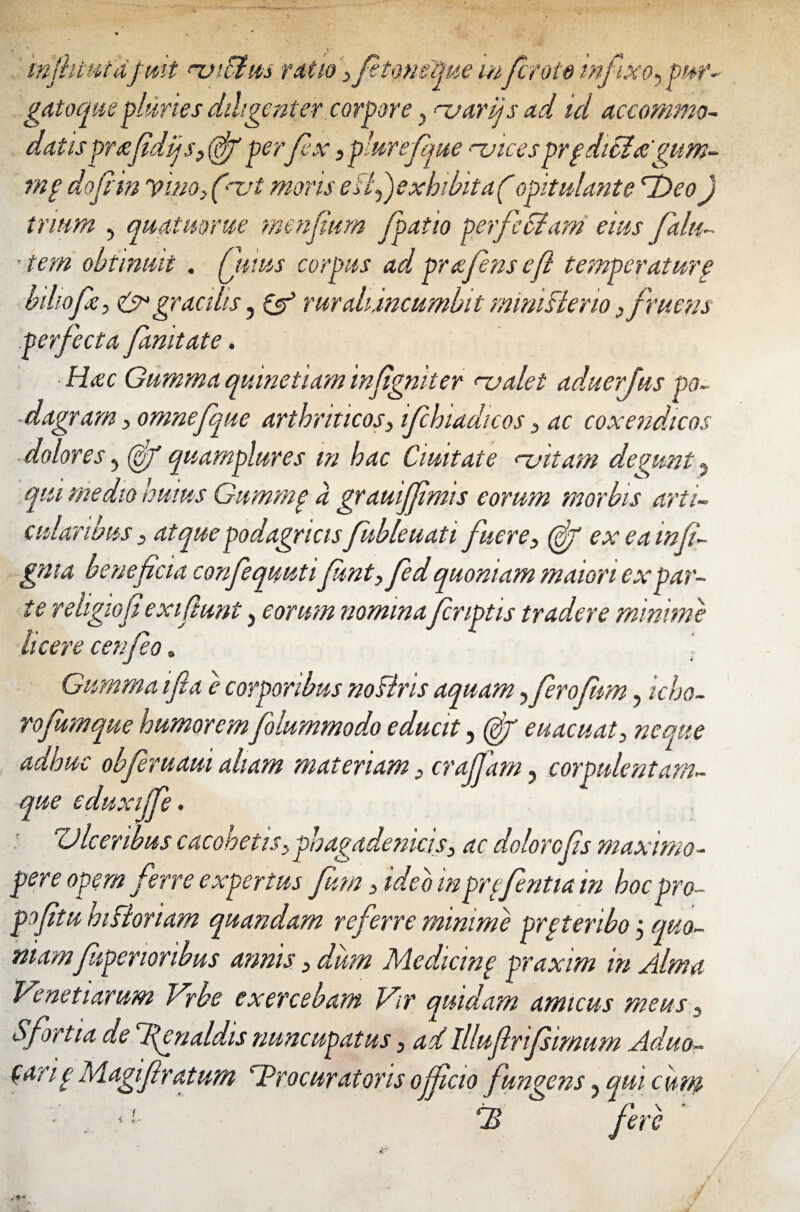 inſtituta fuit victus ratio, ſetoneque in ſcroto infixo, pur-
gatoque pluries diligenter corpore, varijs ad id accommo-
datis præſidijs, & per ſex, plureſque vices prędictæ gum-
mę doſi in vino, (vt moris eſt,) exhibita (opitulante Deo)
trium, quatuorue menſium ſpatio perfectam eius ſalu-
tem obtinuit. Cuius corpus ad præſens eſt temperaturę
bilioſæ, & gracilis, & rurali incumbit miniſterio, fruens
perfecta ſanitate.
Hæc Gumma quinetiam inſigniter valet aduerſus po-
dagram, omneſque arthriticos, iſchiadicos, ac coxendicos
dolores, & quamplures in hac Ciuitate vitam degunt,
qui medio huius Gummę à grauiſſimis eorum morbis arti-
cularibus, atque podagricis ſubleuati fuere, & ex ea inſi-
gnia beneficia conſequuti ſunt, ſed quoniam maiori ex par-
te religioſi exiſtunt, eorum nomina ſcriptis tradere minimè
licere cenſeo.
Gumma iſta è corporibus noſtris aquam, ſeroſum, icho-
roſumque humorem ſolummodo educit, & euacuat, neque
adhuc obſeruaui aliam materiam, craſſam, corpulentam-
que eduxiſſe.
Vlceribus cacohetis, phagadenicis, ac doloroſis maximo-
pere opem ferre expertus ſum, ideò in pręſentia in hoc pro-
poſitu hiſtoriam quandam referre minimè pręteribo; quo-
niam ſuperioribus annis, dùm Medicinę praxim in Alma
Venetiarum Vrbe exercebam Vir quidam amicus meus,
Sfortia de Renaldis nuncupatus, ad Illuſtriſsimum Aduo-
carię Magiſtratum Procuratoris officio fungens, qui cùm
B ferè